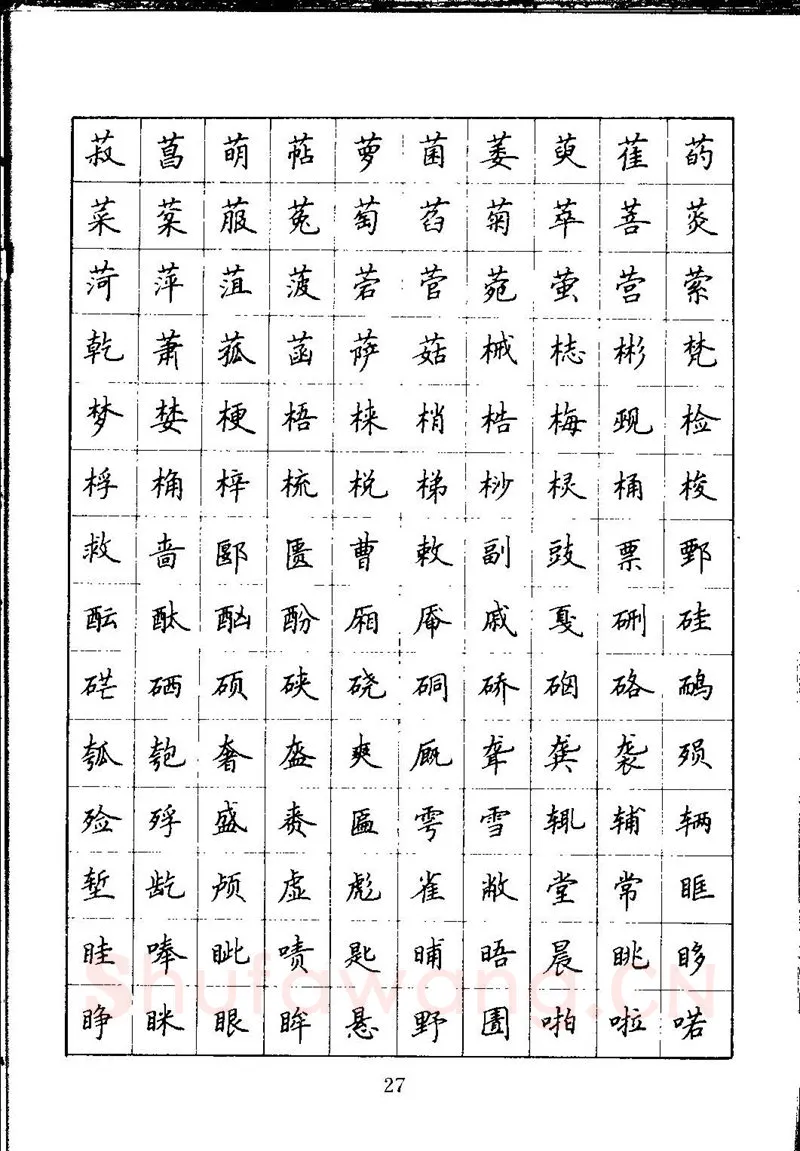 菽 菖 萌 萜 萝 菌 萎 萸 萑 菂
菜 菜 菔 菟 萄 萏 菊 萃 菩 菼
菏 萍 菹 菠 菪 菅 菀 萤 营 萦
乾 萧 菰 菡 萨 菇 械 梽 彬 梵
梦 婪 梗 梧 梾 梢 梏 梅 觋 检
桴 桷 梓 梳 棁 梯 桫 棂 桶 梭
救 啬 郾 匮 曹 敕 副 豉 票 鄄
酝 酞 酗 酚 厢 厣 戚 戛 硎 硅
硭 硒 硕 硖 硗 硐 硚 硇 硌 鸸
瓠 匏 奢 盔 爽 厩 聋 龚 袭 殒
殓 殍 盛 赉 匾 雩 雪 辄 辅 辆
堑 龁 颅 虚 彪 雀 敝 堂 常 眶
眭 唪 眦 啧 匙 晡 晤 晨 眺 眵
睁 眯 眼 眸 悬 野 圊 啪 啦 喏
27
Shufawang.CN